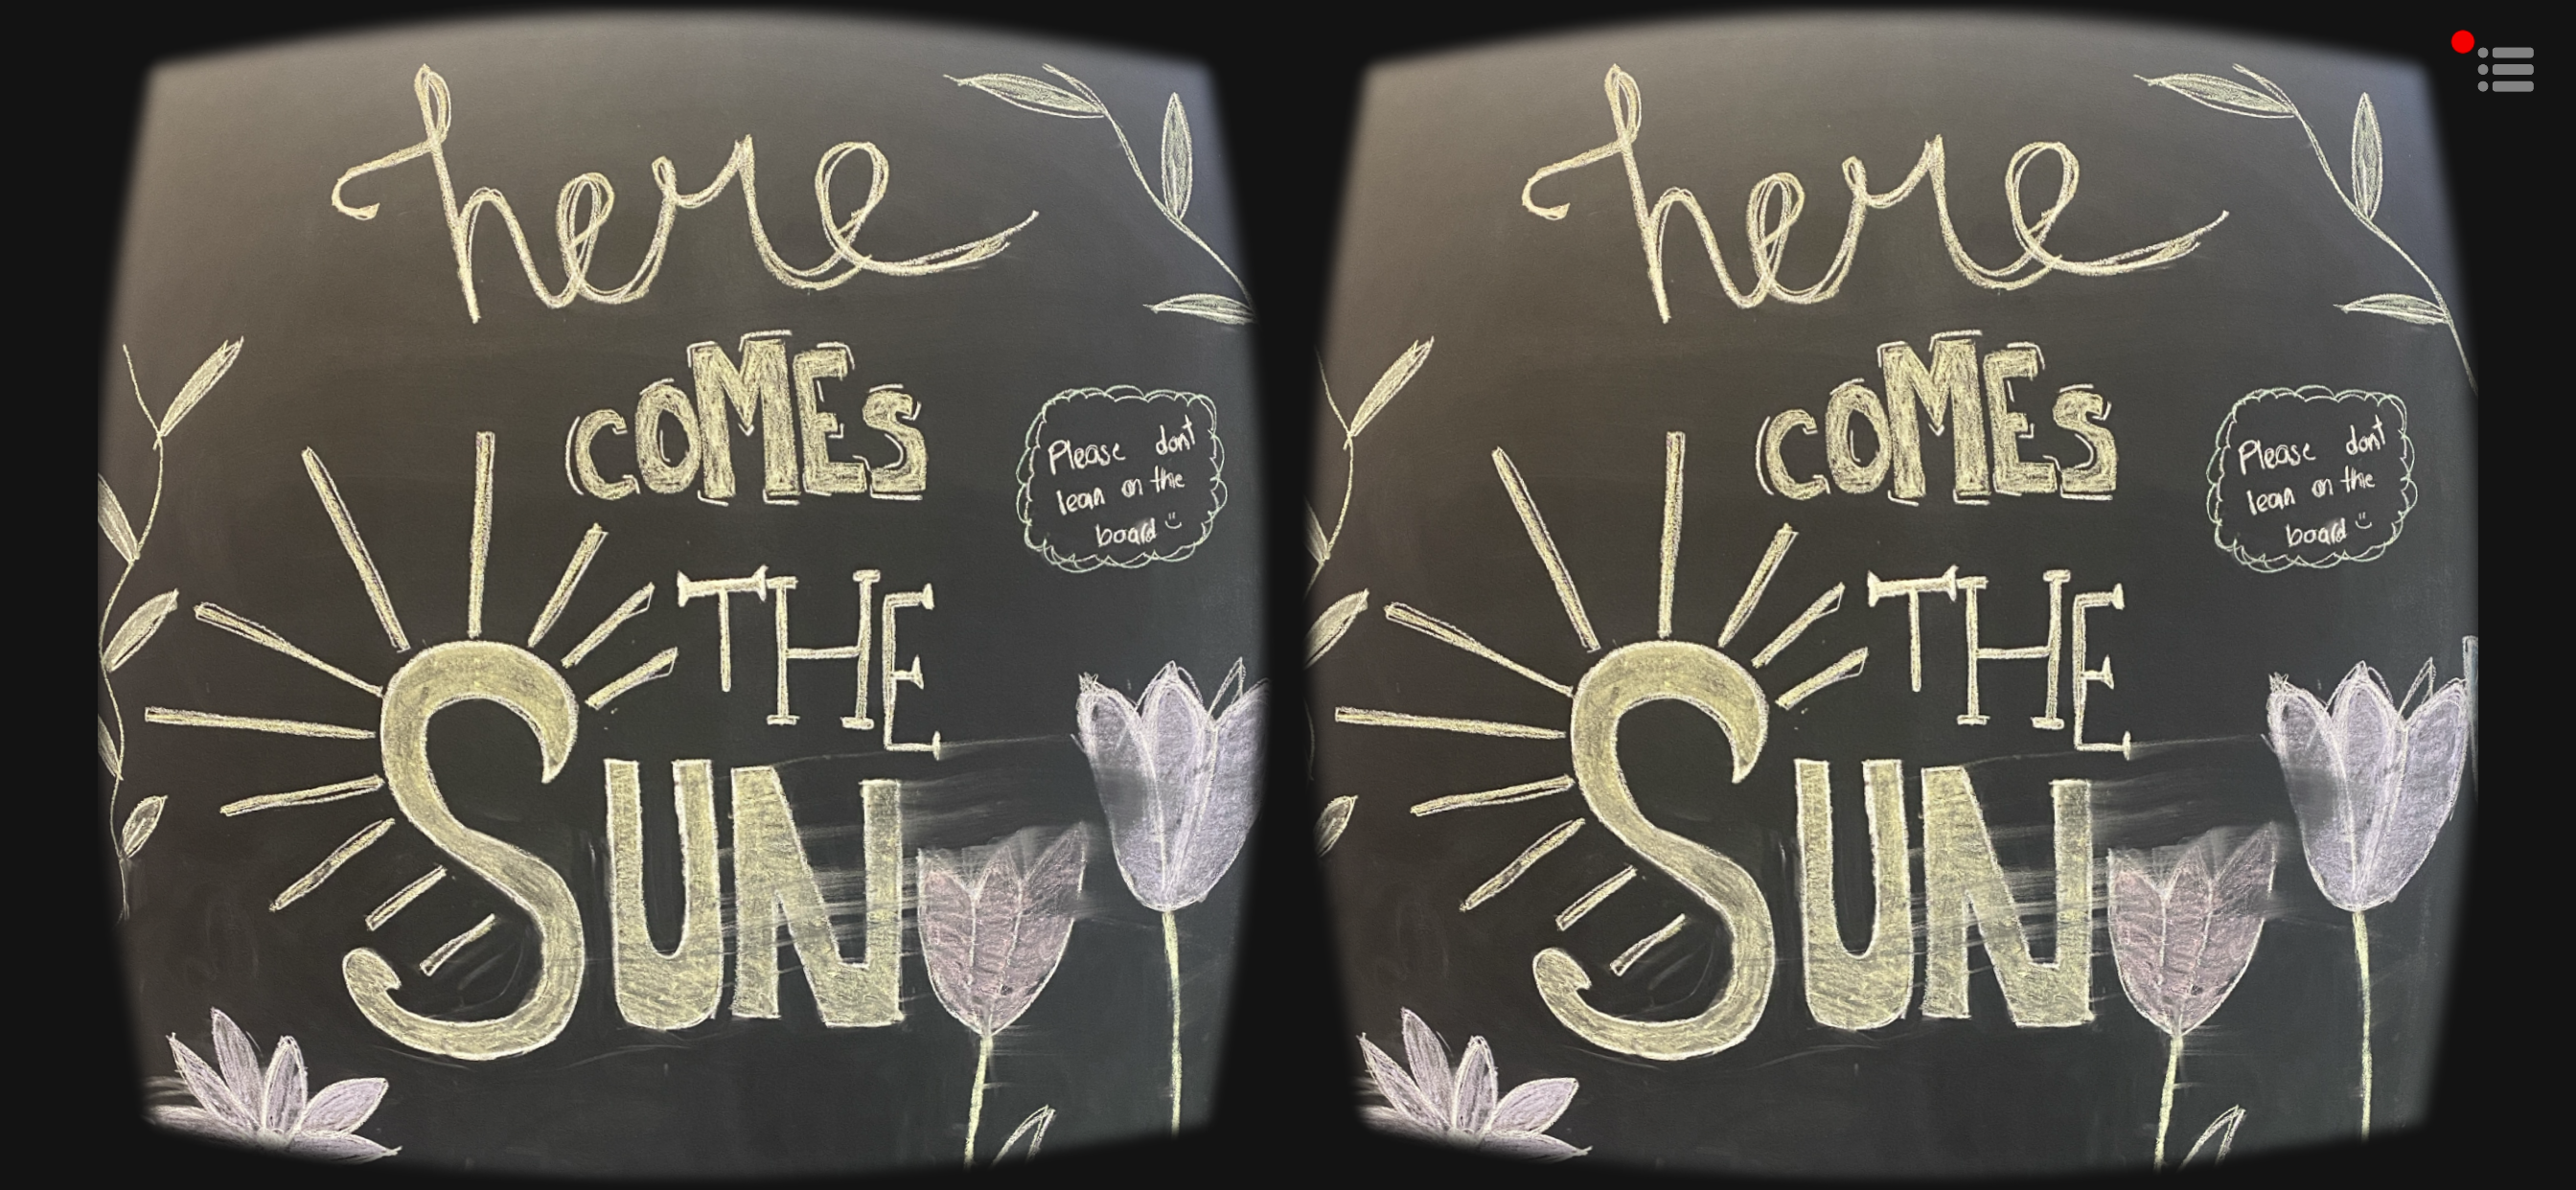 here
COMES
THE
SUN
Please dont
lean on the
board
here
COMES
THE
SUN
Please dont
lean on the
board